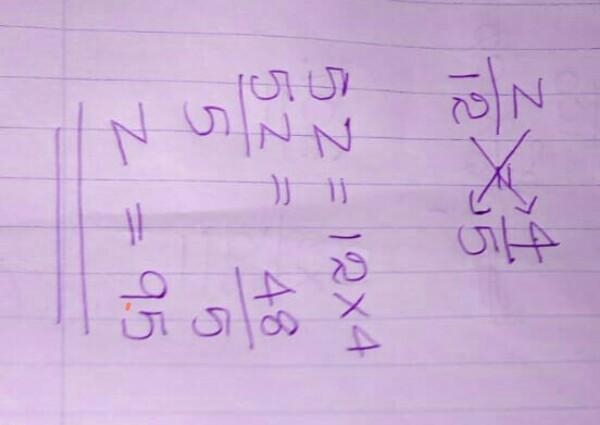 Z/12 = 4/5
5Z = 12 × 4
5Z/5 = 48/5
Z = 9.5